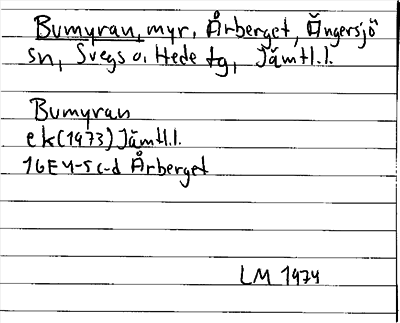 Bumyran, myr, Årberget, Ängersjö
sn, Svegs o. Hede tg, Jämtl.l.
Bumyran
ek(1973) Jämtl.l.
16E 4-5 c-d Årberget
LM 1974